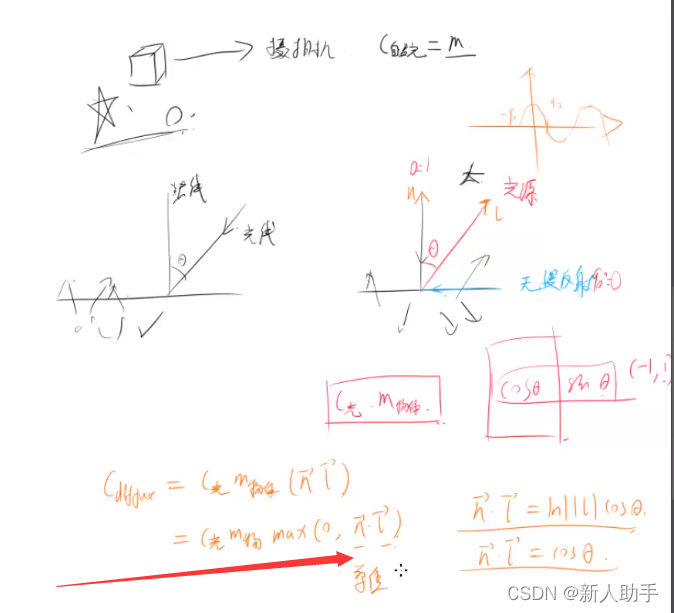 摄相机 C自发光 = m
法线
光线
θ
0=1
n
θ
L
光源
无漫反射 90=0
C光 · m物体
cosθ sinθ (-1,1)
Cdiffuse = C光 m物体 (n⃗ l⃗)
= C光 m物 max(0, n⃗·l⃗)
n⃗·l⃗ = |n||l| cosθ.
n⃗·l⃗ = cosθ.
CSDN @新人助手